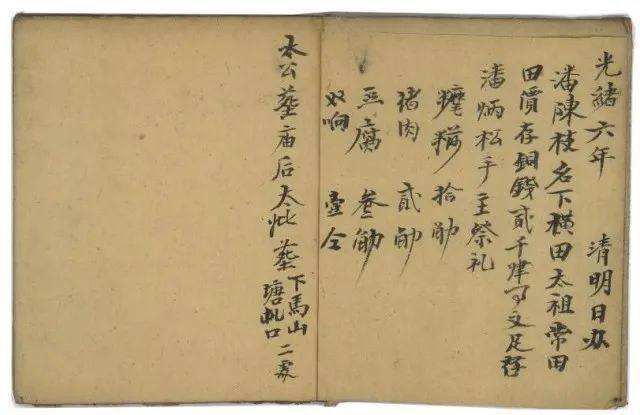 光緒六年 清明日办
潘陳枝名下横田太祖常田
田價存銅錢貳千 文足存
潘炳松手主祭礼
拾觔
猪肉 貳觔
豆腐 叁觔
双响 壹仝
太公墓庙后太妣墓下馬山
塘 口二處